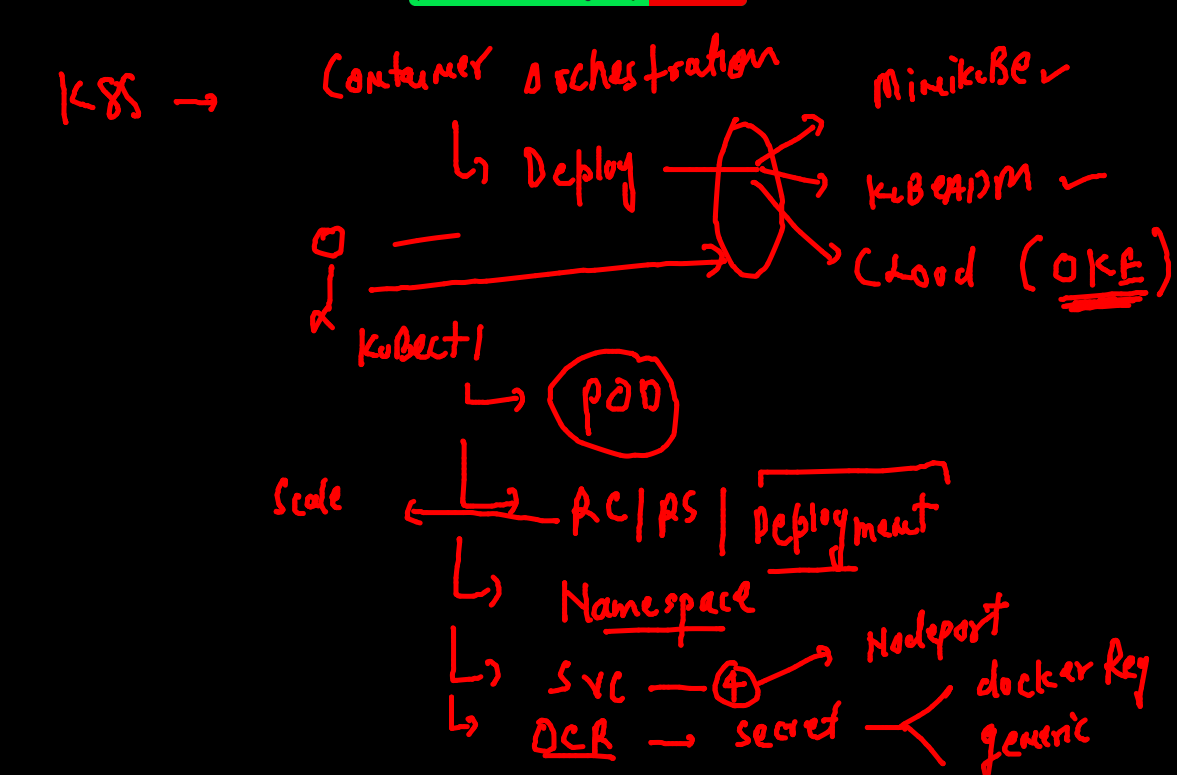 K8S → Container Orchestration
MinikuBe ✓
Deploy
KuBeADM ✓
Cloud (OKE)
KuBectl
POD
Scale ← RC | RS | Deployment
Namespace
Svc — 4 → Nodeport
OCR → secret
dockerReg
generic